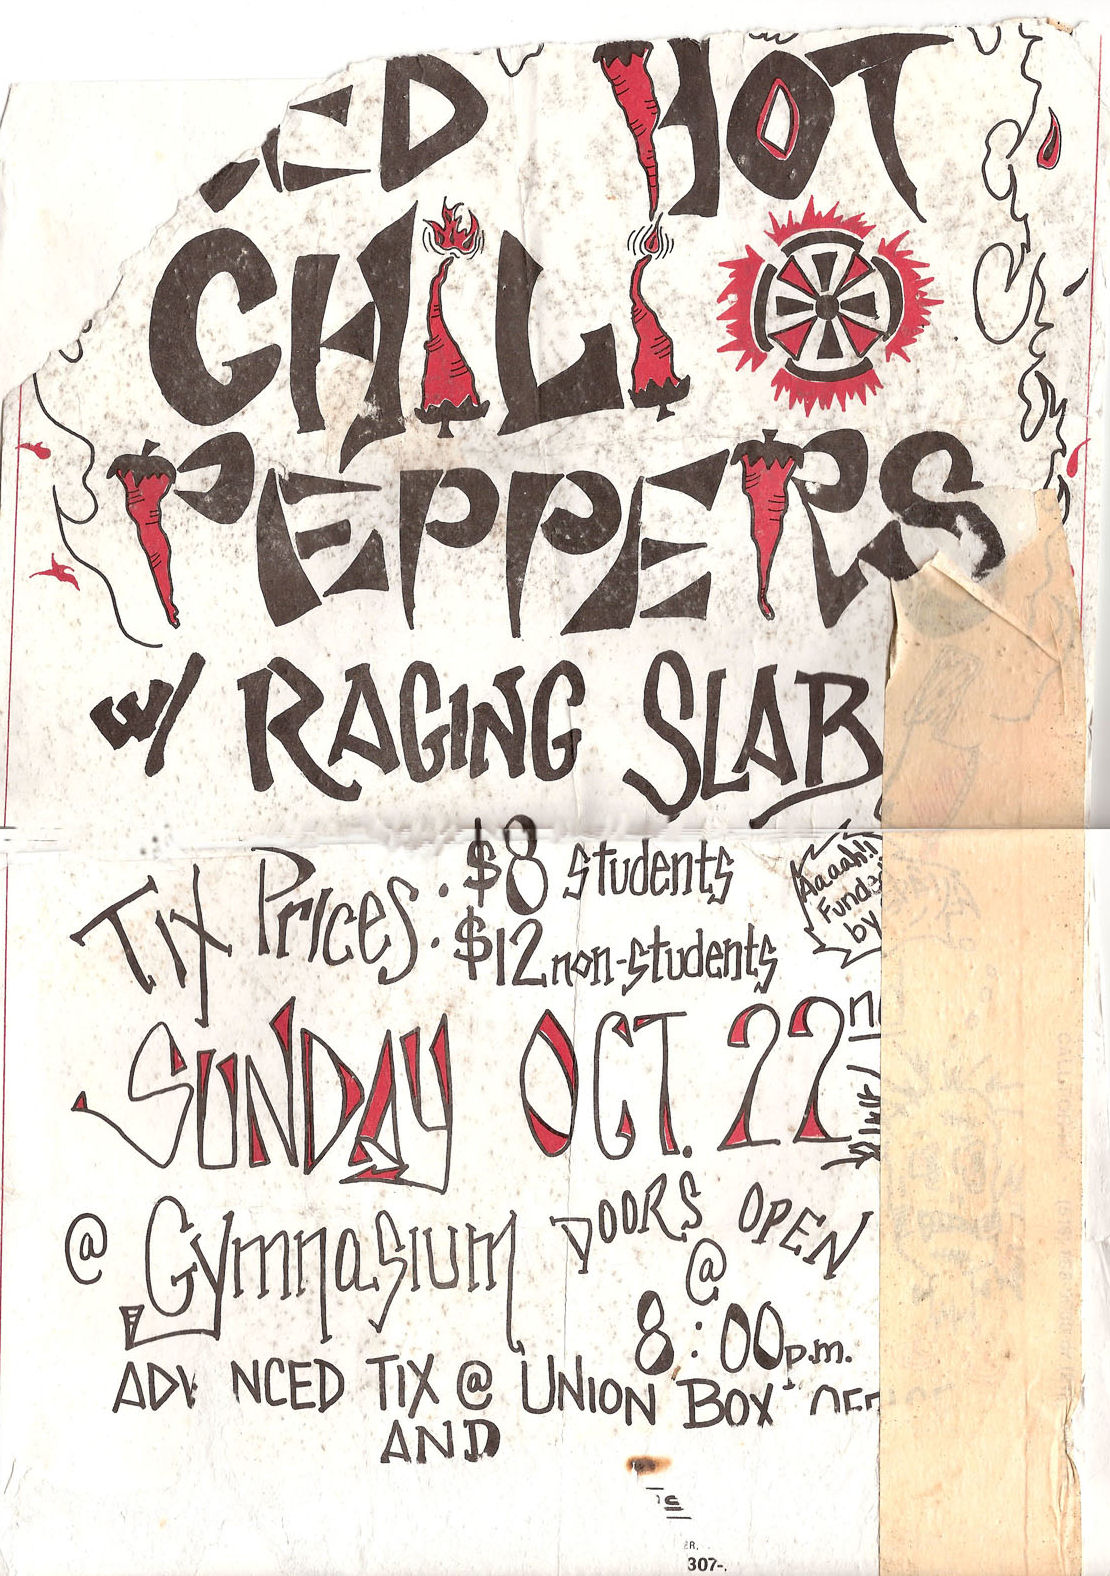 RED HOT
CHILI
PEPPERS
w/ RAGING SLAB
Tix Prices: $8 students
$12 non-students
Aaaah!!
Funded
by
SUNDAY OCT. 22nd
@ Gymnasium
DOORS OPEN
@
8:00 p.m.
ADVANCED TIX @ UNION BOX
AND
307-